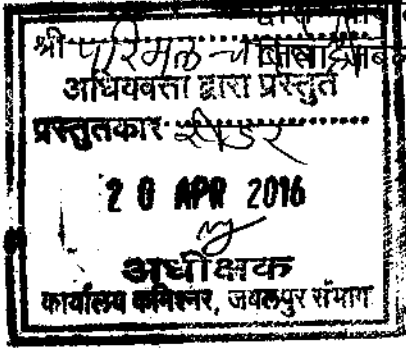 श्री परिमल च
अधिवक्ता द्वारा प्रस्तुत
प्रस्तुतकार रीडर
20 APR 2016
अधीक्षक
कार्यालय कमिश्नर, जबलपुर संभाग